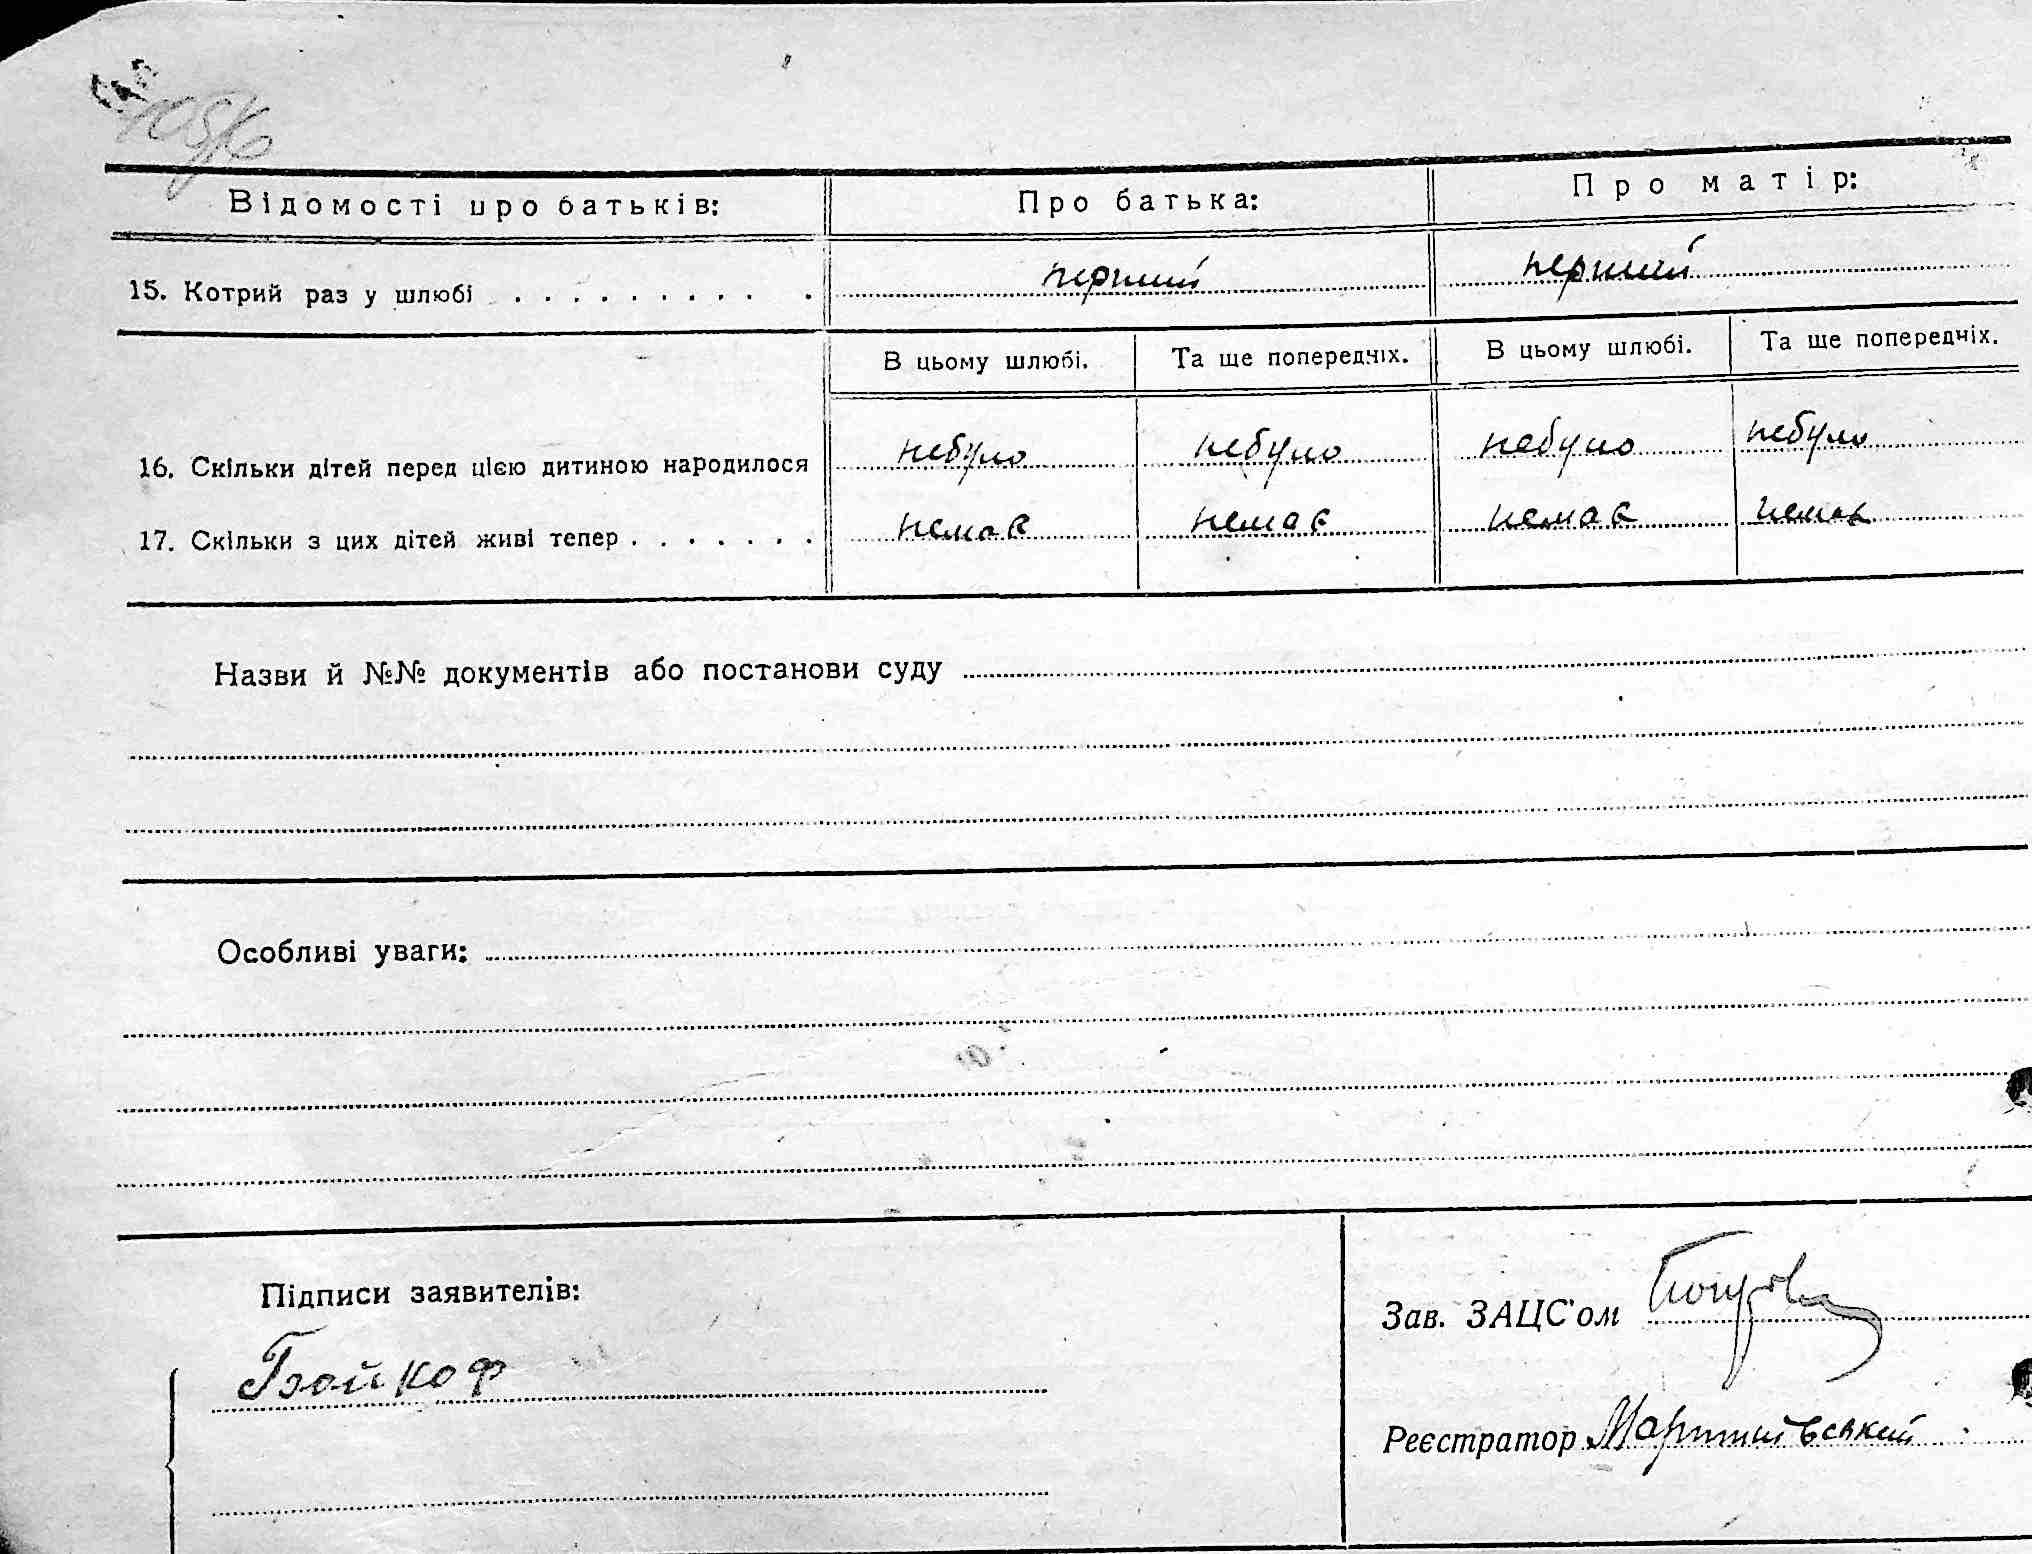 Відомості про батьків: Про батька: Про матір:
15. Котрий раз у шлюбі . . . . . . . . . . перший перший
В цьому шлюбі. Та ще попередніх. В цьому шлюбі. Та ще попередніх.
16. Скільки дітей перед цією дитиною народилося небуло небуло небуло небуло
17. Скільки з цих дітей живі тепер . . . . . . . немає немає немає немає
Назви й №№ документів або постанови суду
Особливі уваги:
Підписи заявителів:
Бойко Ф
Зав. ЗАЦС'ом
Реєстратор